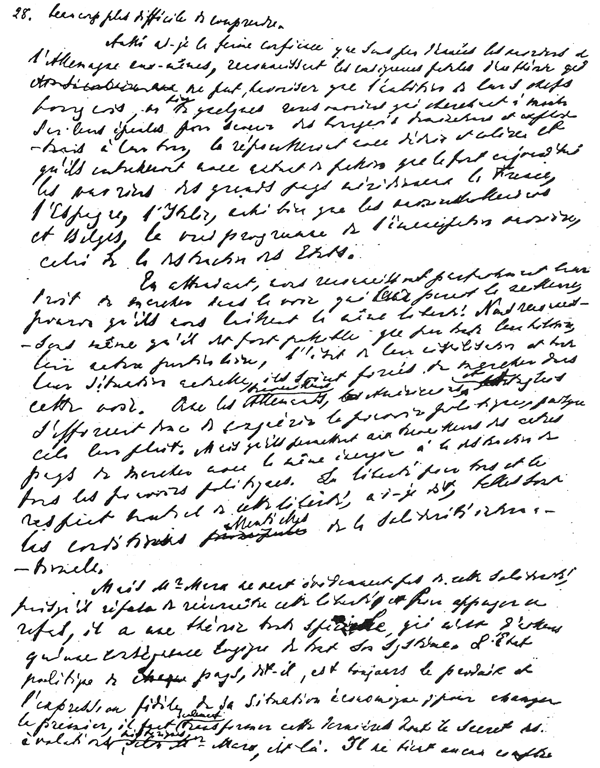 28. beaucoup plus difficile de comprendre.
Aussi ai-je la ferme confiance que sous peu d'années les ouvriers de
l'Allemagne eux-mêmes, reconnaissant les conséquences fatales d'une théorie qui
ne peut favoriser que l'ambition de leurs chefs
bourgeois, ou bien de quelques ouvriers qui cherchent à monter
sur leurs épaules pour devenir des bourgeois dominateurs et exploi-
-teurs à leur tour, la repousseront avec dédain et colère et
qu'ils embrasseront avec autant de passion que le font aujourd'hui
les ouvriers des grands pays méridionaux la France,
l'Espagne, l'Italie, aussi bien que les ouvriers Hollandais
et Belges, le vrai programme de l'émancipation ouvrière,
celui de la destruction des États.
En attendant, nous reconnaissons parfaitement leur
droit de marcher dans la voie qui leur paraît la meilleure,
pourvu qu'ils nous laissent la même liberté. Nous reconnais-
-sons même qu'il est fort possible que par toute leur histoire,
leur nature particulière, l'état de leur civilisation et toute
leur situation actuelle, ils soient forcés de marcher dans
cette voie. Que les travailleurs Allemands, Américains et Anglais
s'efforcent donc de conquérir le pouvoir politique, puisque
cela leur plaît. Mais qu'ils permettent aux travailleurs des autres
pays de marcher avec la même énergie à la destruction de
tous les pouvoirs politiques. La liberté pour tous et le
respect mutuel de cette liberté, ai-je dit, telles sont
les conditions essentielles de la solidarité interna-
-tionale.
Mais Mr Marx ne veut évidemment pas de cette solidarité,
puisqu'il refuse de reconnaître cette liberté. Pour appuyer ce
refus, il a une théorie toute spéciale, qui n'est d'ailleurs
qu'une conséquence logique de tout son système. L'État
politique de chaque pays, dit-il, est toujours le produit et
l'expression fidèle de sa situation économique; pour changer
le premier, il faut seulement transformer cette dernière. Tout le secret des
évolutions historiques, selon Mr Marx, est là. Il ne tient aucun compte